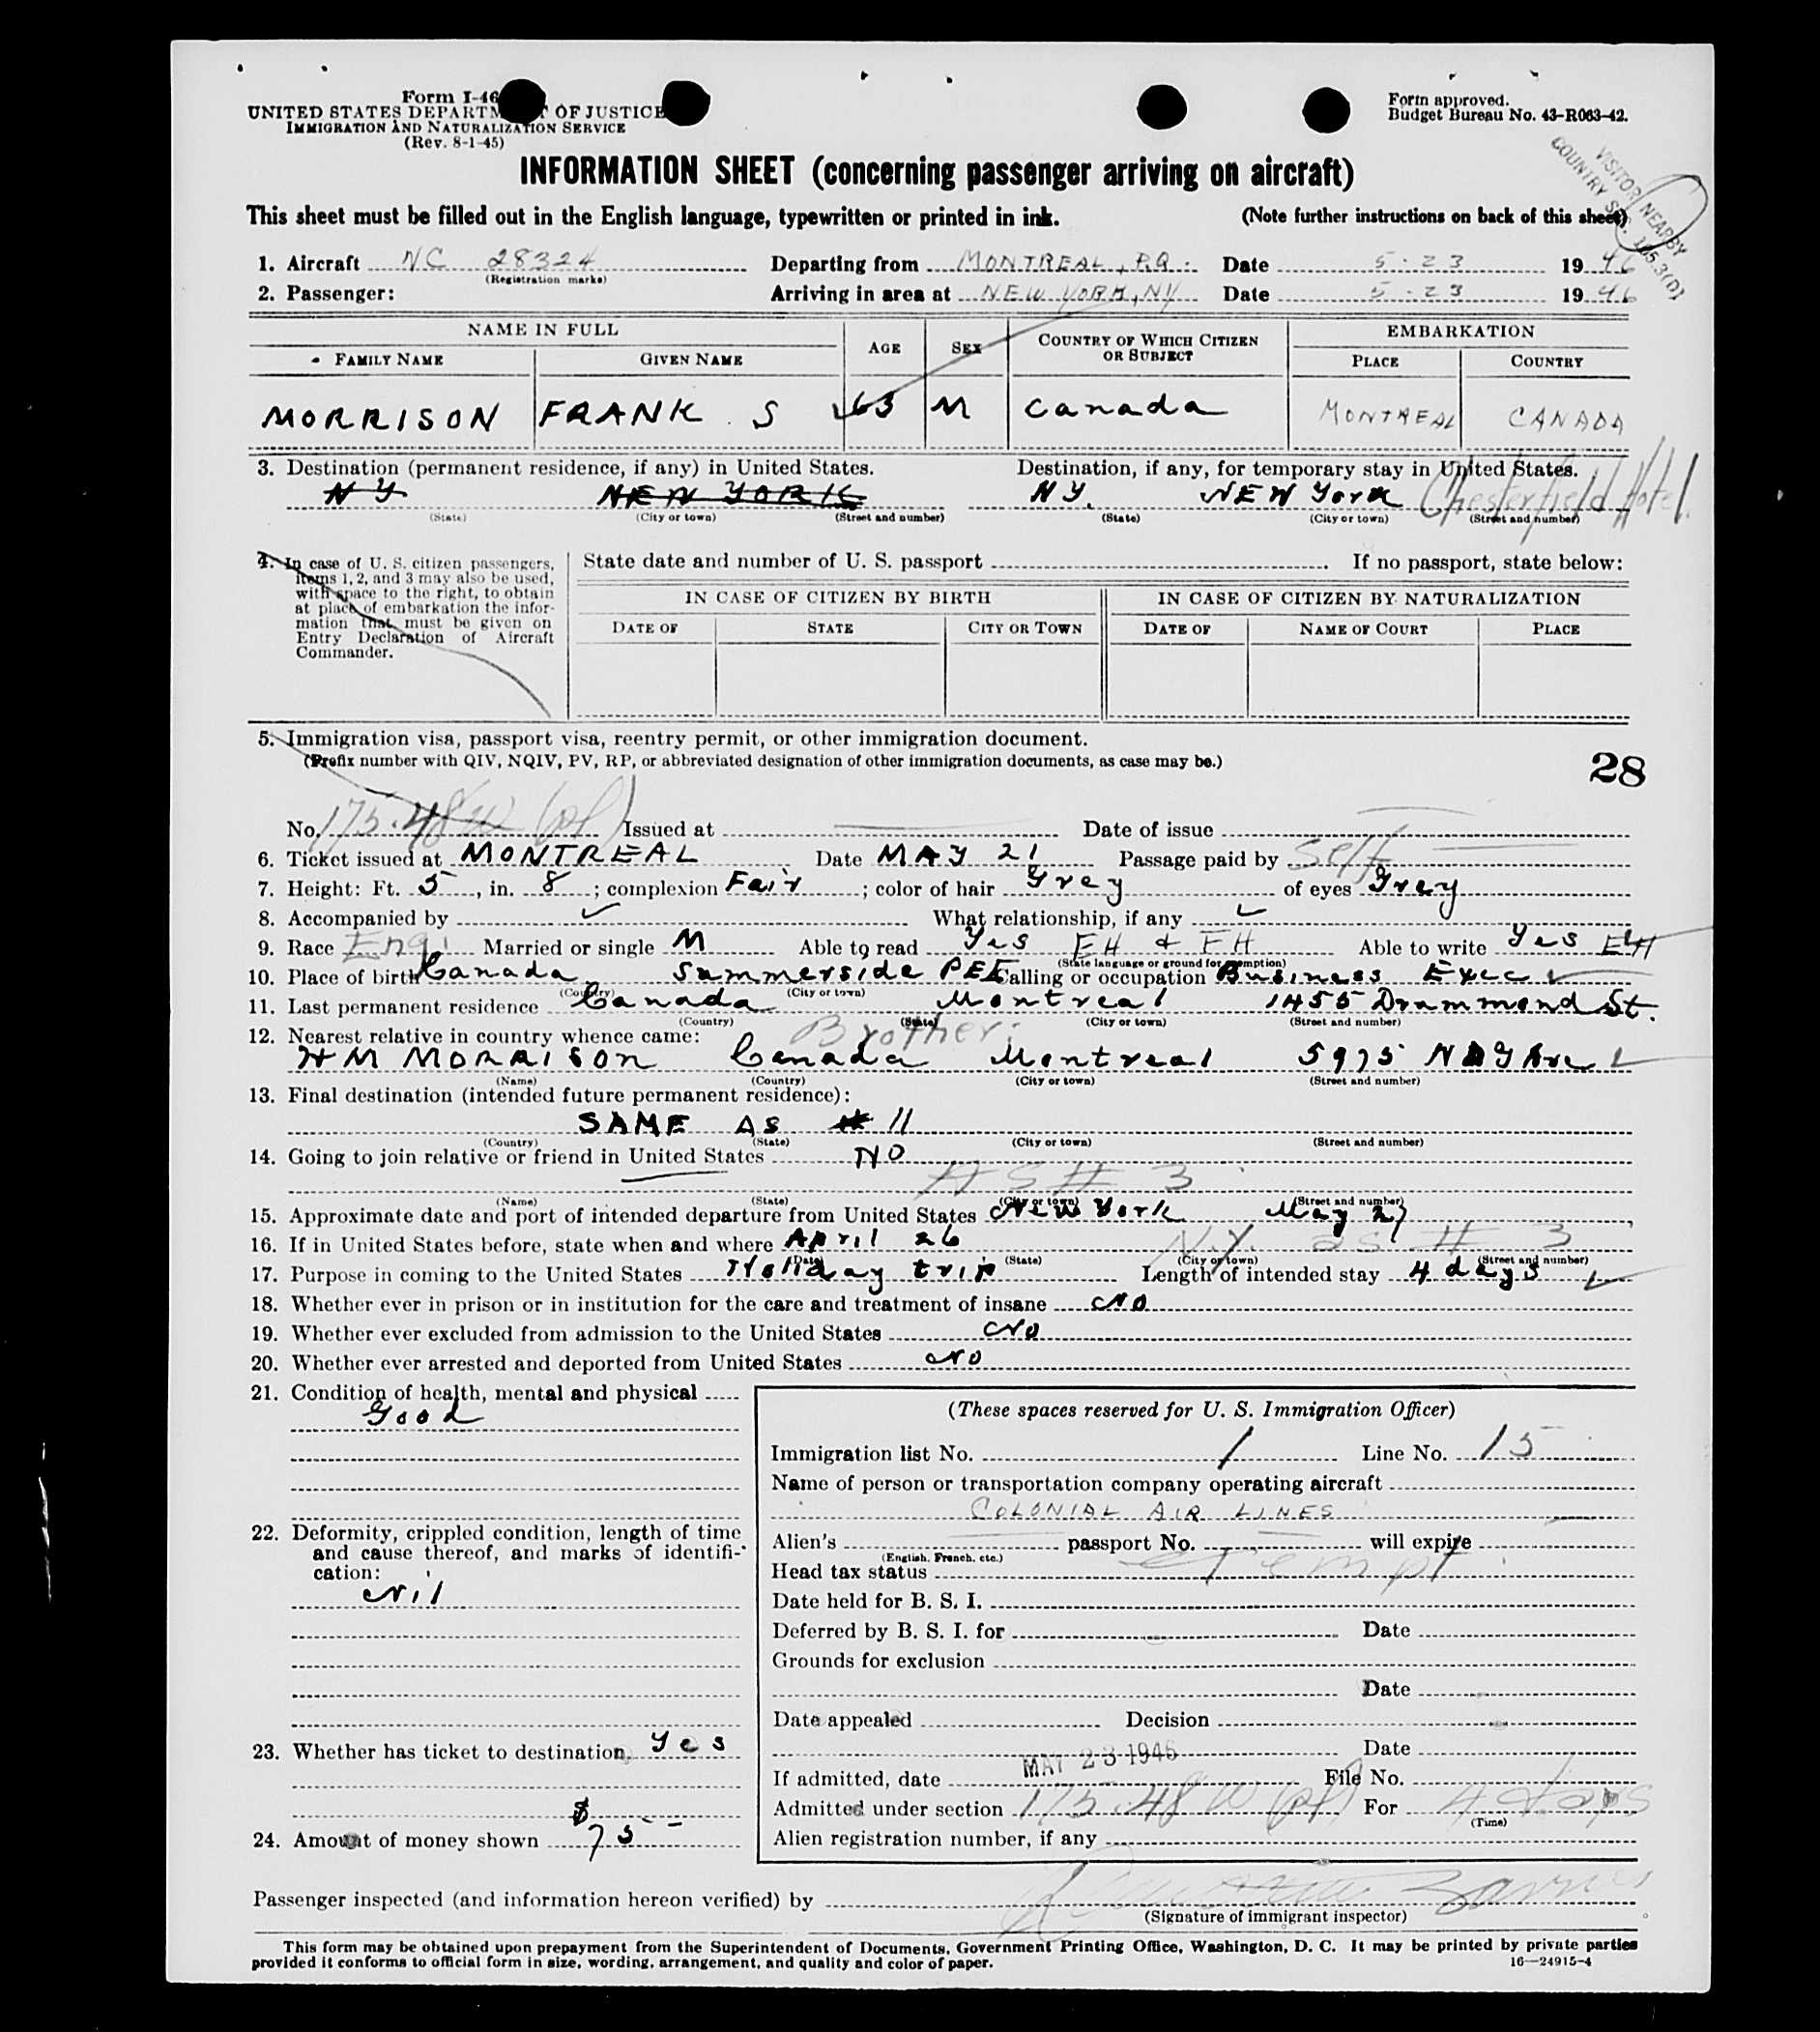 Form I-46
UNITED STATES DEPARTMENT OF JUSTICE
IMMIGRATION AND NATURALIZATION SERVICE
(Rev. 8-1-45)
Form approved.
Budget Bureau No. 43-R063-42.
VISITOR NEARBY
COUNTRY SEC. 175.3(D)
INFORMATION SHEET (concerning passenger arriving on aircraft)
This sheet must be filled out in the English language, typewritten or printed in ink. (Note further instructions on back of this sheet)
1. Aircraft NC 28324 Departing from MONTREAL, P.Q. Date 5-23 1946
(Registration marks)
2. Passenger: Arriving in area at NEW YORK, NY Date 5-23 1946
NAME IN FULL AGE SEX COUNTRY OF WHICH CITIZEN OR SUBJECT EMBARKATION
FAMILY NAME GIVEN NAME PLACE COUNTRY
MORRISON FRANK S 63 M Canada MONTREAL CANADA
3. Destination (permanent residence, if any) in United States. Destination, if any, for temporary stay in United States.
NY NEW YORK NY. NEW York Chesterfield Hotel.
(State) (City or town) (Street and number) (State) (City or town) (Street and number)
4. In case of U. S. citizen passengers, items 1, 2, and 3 may also be used, with space to the right, to obtain at place of embarkation the information that must be given on Entry Declaration of Aircraft Commander.
State date and number of U. S. passport If no passport, state below:
IN CASE OF CITIZEN BY BIRTH IN CASE OF CITIZEN BY NATURALIZATION
DATE OF STATE CITY OR TOWN DATE OF NAME OF COURT PLACE
5. Immigration visa, passport visa, reentry permit, or other immigration document.
(Prefix number with QIV, NQIV, PV, RP, or abbreviated designation of other immigration documents, as case may be.)
28
No. 175.48 W (pf) Issued at Date of issue
6. Ticket issued at MONTREAL Date MAY 21 Passage paid by Self
7. Height: Ft. 5, in. 8; complexion Fair; color of hair Grey of eyes Grey
8. Accompanied by What relationship, if any
9. Race Eng. Married or single M Able to read Yes EH & FH Able to write Yes EH
(State language or ground for exemption)
10. Place of birth Canada Summerside PEI Calling or occupation Business Exec
(Country) (City or town)
11. Last permanent residence Canada Montreal 1455 Drummond St.
(Country) (State) (City or town) (Street and number)
12. Nearest relative in country whence came: Brother:
HM MORRISON Canada Montreal 5975 NDG Ave
(Name) (Country) (City or town) (Street and number)
13. Final destination (intended future permanent residence):
SAME AS # 11
(Country) (State) (City or town) (Street and number)
14. Going to join relative or friend in United States NO
AS # 3
(Name) (State) (City or town) (Street and number)
15. Approximate date and port of intended departure from United States New York May 27
16. If in United States before, state when and where April 26 N.Y. as # 3
(Date) (State) (City or town) (Street and number)
17. Purpose in coming to the United States Holiday trip Length of intended stay 4 days
18. Whether ever in prison or in institution for the care and treatment of insane No
19. Whether ever excluded from admission to the United States No
20. Whether ever arrested and deported from United States No
21. Condition of health, mental and physical
Good
22. Deformity, crippled condition, length of time and cause thereof, and marks of identification:
Nil
23. Whether has ticket to destination Yes
24. Amount of money shown $75 –
(These spaces reserved for U. S. Immigration Officer)
Immigration list No. 1 Line No. 15
Name of person or transportation company operating aircraft
COLONIAL AIR LINES
Alien's passport No. will expire
(English, French, etc.)
Head tax status Temp
Date held for B. S. I.
Deferred by B. S. I. for Date
Grounds for exclusion
Date
Date appealed Decision
Date
If admitted, date MAY 23 1946 File No.
Admitted under section 175.48 W (pf) For 4 days
(Time)
Alien registration number, if any
Passenger inspected (and information hereon verified) by
(Signature of immigrant inspector)
This form may be obtained upon prepayment from the Superintendent of Documents, Government Printing Office, Washington, D. C. It may be printed by private parties
provided it conforms to official form in size, wording, arrangement, and quality and color of paper. 16—24915-4